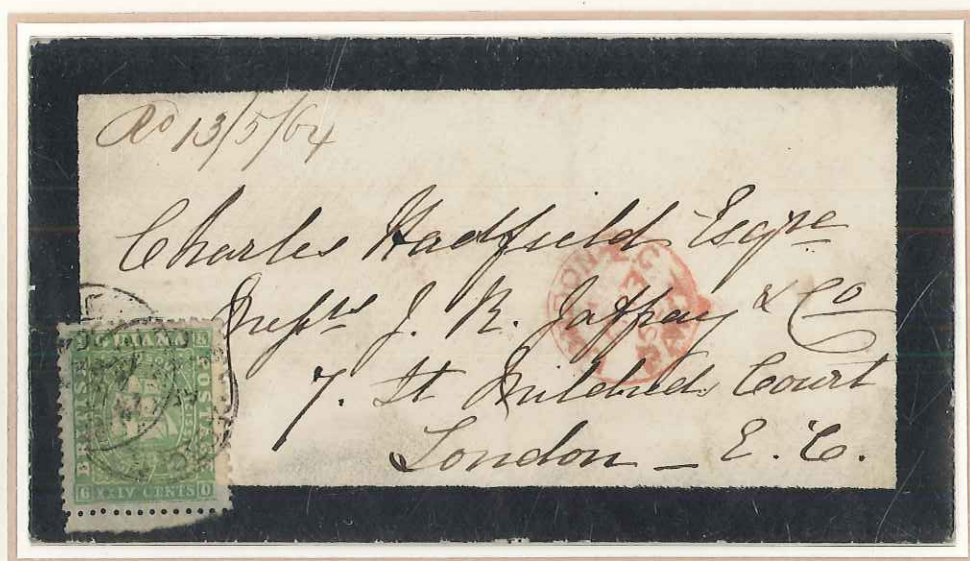 Ad 13/5/64
Charles Hadfield Esqre
Messrs J. R. Jaffray & Co
7. St Mildreds Court
London _ E. C.
LONDON E.C
PAID
BRITISH
GUIANA
POSTAGE
XXIV CENTS